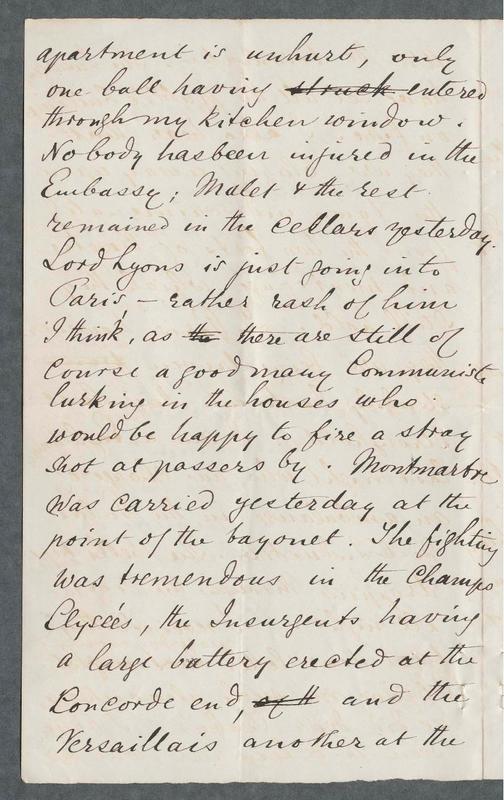 apartment is unhurt, only
one ball having struck entered
through my kitchen window.
Nobody has been injured in the
Embassy; Malet & the rest
remained in the cellars yesterday.
Lord Lyons is just going into
Paris, – rather rash of him
I think, as the there are still of
course a good many Communists
lurking in the houses who
would be happy to fire a stray
shot at passers by. Montmartre
was carried yesterday at the
point of the bayonet. The fighting
was tremendous in the Champs
Elysées, the Insurgents having
a large battery erected at the
Concorde end, and the
Versaillais another at the